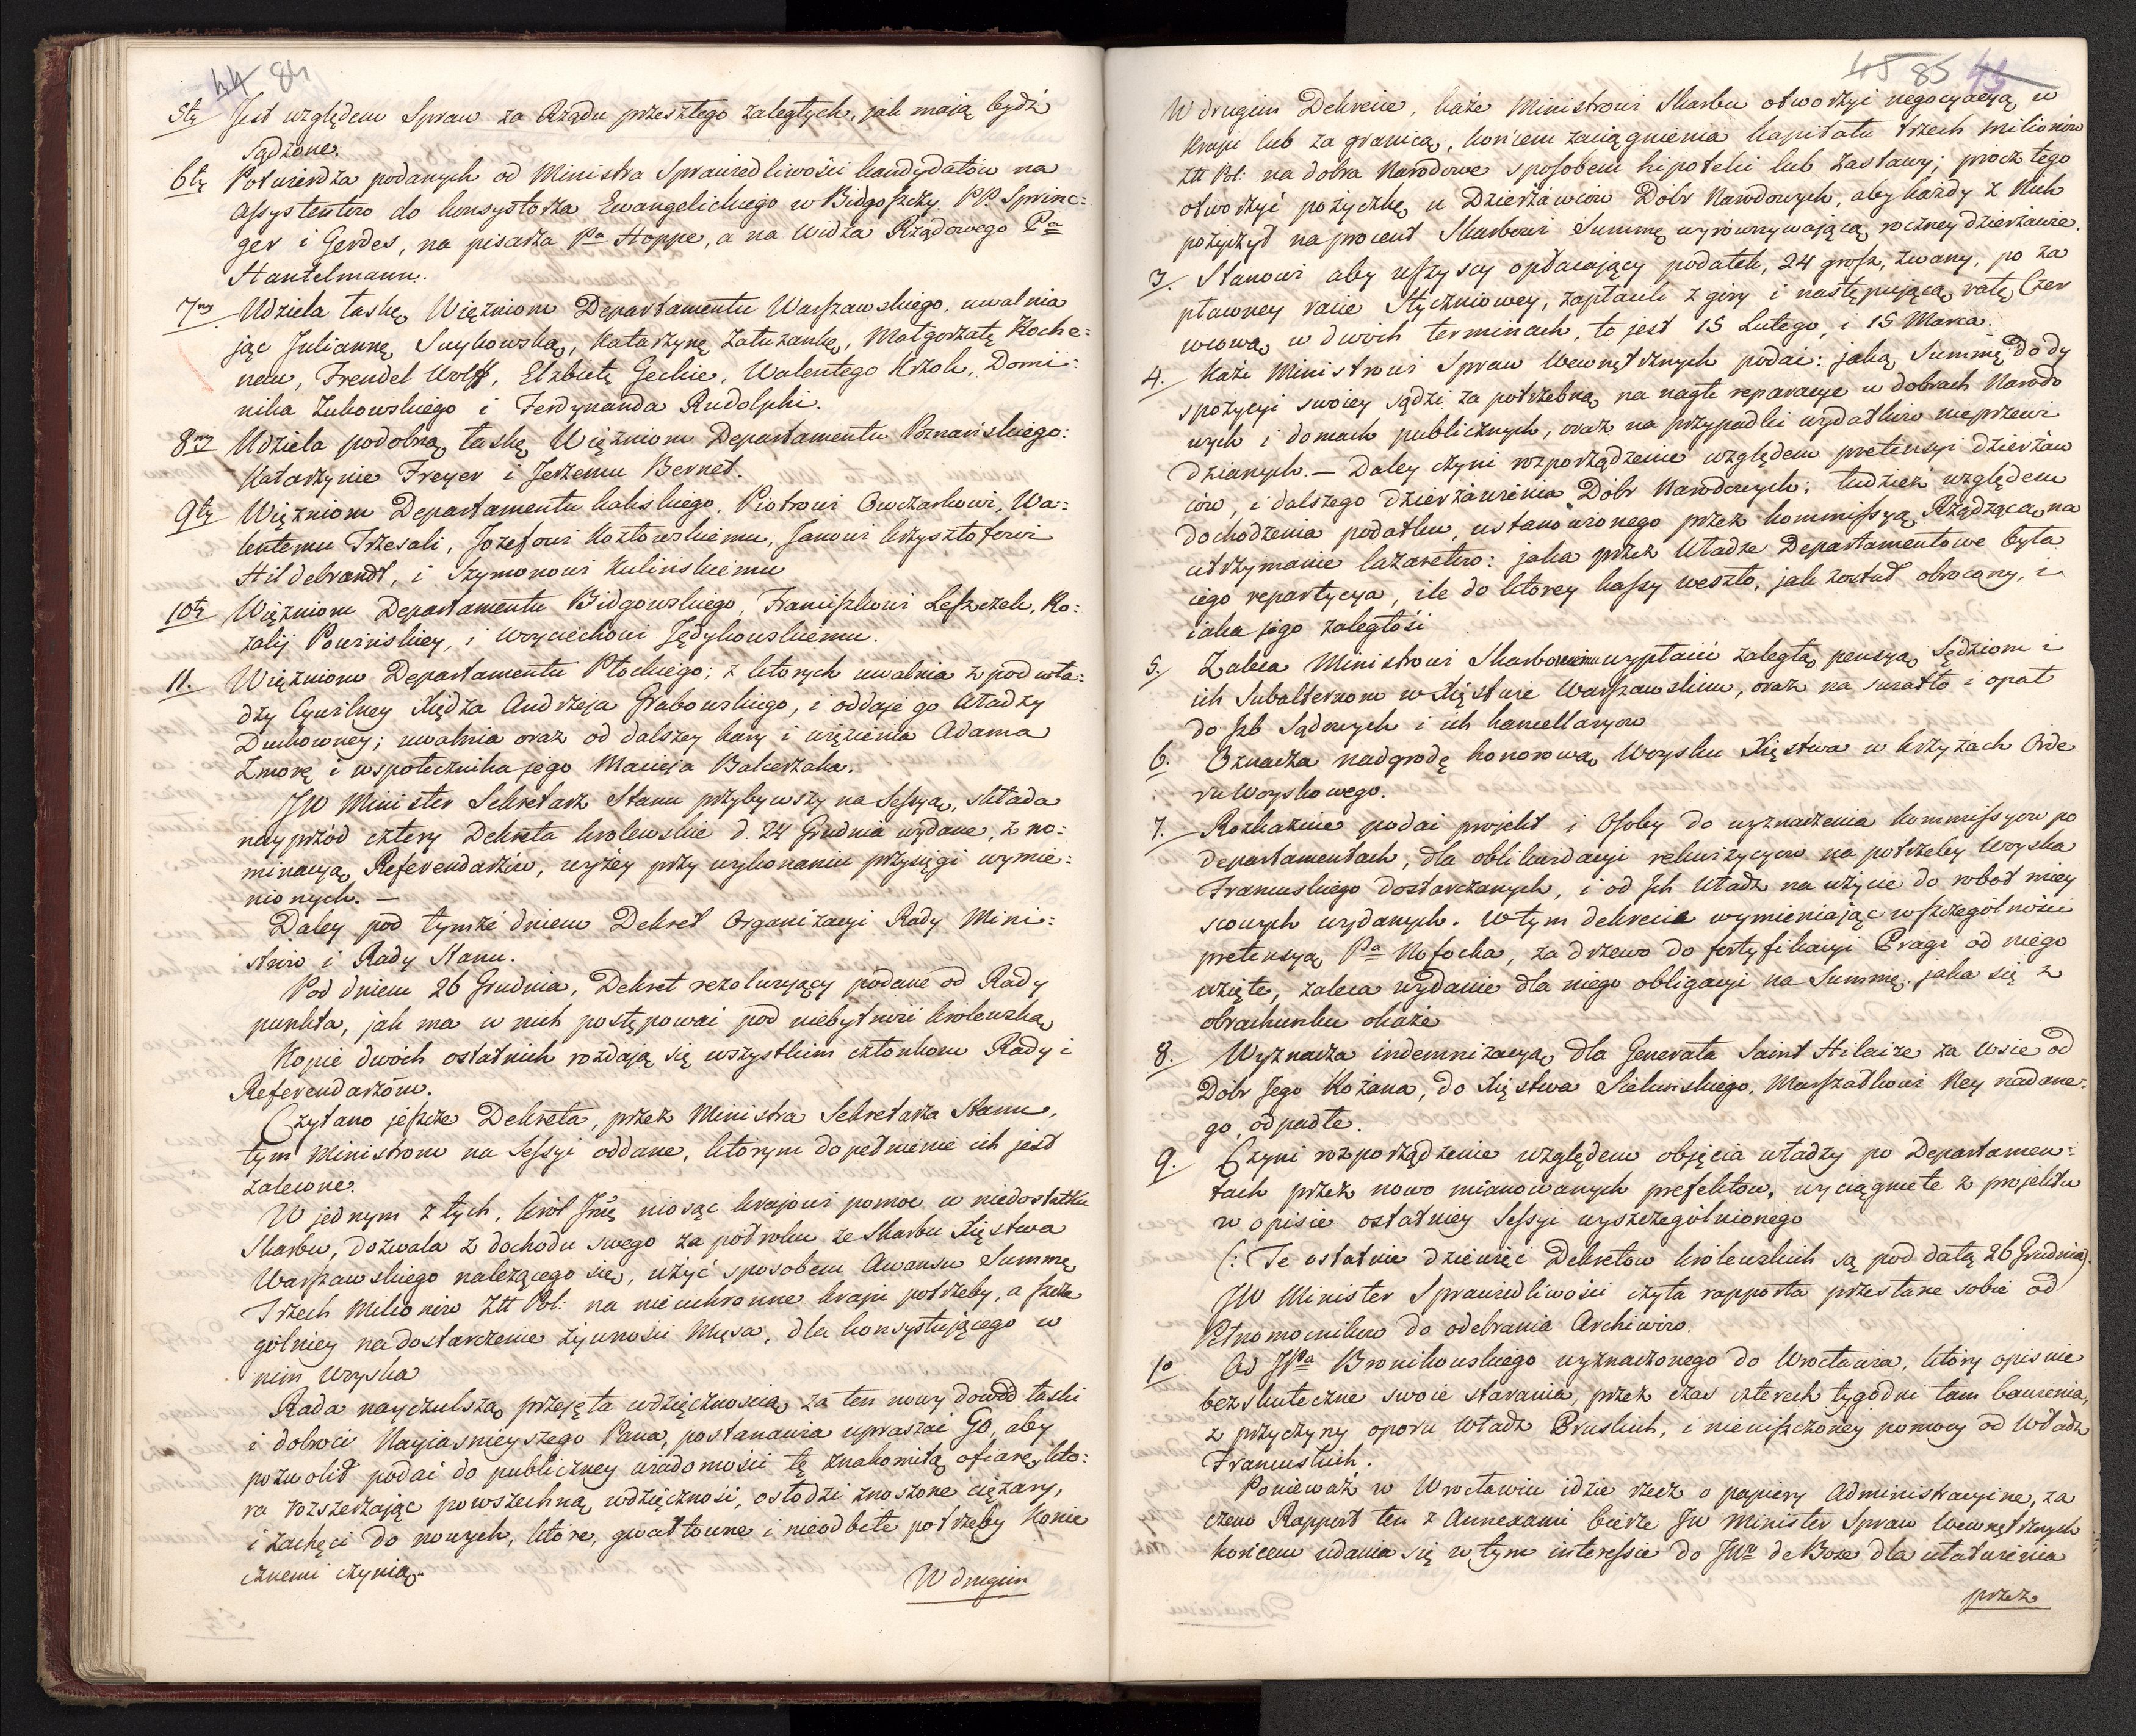 44 84
5tę Jest względem Spraw za Rządu przeszłego zaległych, jak mają bydź
Sądzone.
6tę Potwierdza podanych od Ministra Sprawiedliwości kandydatów na
Assystentów do konsystorza Ewangelickiego w Bidgoszczy PP. Sprin:
ger i Gerdes, na pisarza Pa Hoppe, a na Widza Rządowego Pa
Hantelmann.
7my Udziela łaskę Więźniom Departamentu Warszawskiego, uwalnia
jąc Juliannę Suykowską, Katarzynę Załuzankę, Małgorzatę Koche:
nen, Frendel Wolff, Elżbietę Geckie, Walentego Krzok, Domi:
nika Zukowskiego i Ferdynanda Rudolphi.
8my Udziela podobną łaskę Więźniom Departamentu Poznańskiego:
Katarzynie Freyer i Jerzemu Bernet.
9tę Więźniom Departamentu kaliskiego, Piotrowi Owczarkowi, Wa:
lentemu Trzesali, Jozefowi Kozłowskiemu, Janowi krzysztofowi
Hildebrandt, i Szymonowi Kulińskiemu
10tę Więźniom Departamentu Bidgowskiego, Franciszkowi Leszczek, Ro:
zalij Powinskiey, i Woyciechowi Jędykowskiemu.
11. Więźniom Departamentu Płockiego; z ktorych uwalnia z pod wła:
dzy Cywilney Xiędza Andrzeja Grabowskiego, i oddaje go Władzy
Duchowney; uwalnia oraz od dalszey kary i więzienia Adama
Zmorę i wspolicznika jego Macieja Balcerzaka.
JW Minister Sekretarz Stanu przybywszy na Sessyą, składa
nayprzód cztery Dekreta krolewskie d. 24 Grudnia wydane, z no:
minacyą Referendarzów, wyżey przy wykonaniu przysięgi wymie:
nionych. —
Daley pod tymże dniem Dekret Organizacyi Rady Mini:
strów i Rady Stanu.
Pod dniem 26 Grudnia, Dekret rezolwujący podane od Rady
punkta, jak ma w nich postępować pod niebytność krolewską
Kopie dwóch ostatnich rozdają się wszystkim członkom Rady i
Referendarzóm.
Czytano jeszcze Dekreta, przez Ministra Sekretarza Stanu,
tym Ministrom na Sessyi oddane, ktorym dopełnienie ich jest
zalecone.
W jednym z tych, król Jmę niosąc krajowi pomoc w niedostatku
Skarbu, dozwala z dochodu swego za pół roku ze Skarbu Xięstwa
Warszawskiego należącego się, użyć sposobem Awansu Summę
Trzech Milionów Złł Pol: na nieuchronne kraju potrzeby, a szcze
gólniey na dostarczenie żywności Mięsa, dla konsystującego w
nim Woyska
Rada nayczulszą przejęta wdzięcznością za ten nowy dowód łaski
i dobroci Nayiasnieyszego Pana, postanawia upraszać Go, aby
pozwolił podać do publiczney wiadomości tę znakomitą ofiarę, kto:
ra rozszerzając powszechną wdzięczność, osłodzi znoszone ciężary,
i zachęci do nowych, które, gwałtowne i nieodbite potrzeby Konie
cznemi czynią.
W drugim
45 85 43
W drugim Dekrecie, każe Ministrowi Skarbu otworzyć negocyacyą w
kraju lub za granicą, końcem zaciągnienia kapitału trzech milionów
Złł Pol: na dobra Narodowe sposobem hipoteki lub zastawy; prócz tego
otworzyć pożyczkę u Dzierżawców Dóbr Narodowych, aby każdy z Nich
pożyczył na procent Skarbowi Summę wyrównywającą roczney dzierżawie.
3. Stanowi aby wszyscy opłacający podatek, 24 grosz, zwany, po za
płaconey racie Styczniowey, zapłacili z góry i następującą ratę Czer
wcową w dwóch terminach, to jest 15 Lutego, i 15 Marca.
4. Każe Ministrowi Spraw Wewnętrznych podać: jaką Summę do dy
spozycyi swoiey sądzi za potrzebną na nagłe reparacye w dobrach Narodo
wych i domach publicznych, oraz na przypadki wydatków nieprzewi
dzianych. — Daley czyni rozporządzenie względem pretensyi dzierżaw
ców, i dalszego dzierżawienia Dóbr Narodowych; tudzież względem
dochodzenia podatku, ustanowionego przez kommissyą Rządzącą na
utrzymanie lazaretów: jaka przez Władze Departamentowe była
iego repartycya, ile do ktorey kassy weszło, jak został obrocony, i
iaka jego zaległość
5. Zaleca Ministrowi Skarbowemu wypłacić zaległą pensyą Sędziom i
ich Subalternom w Xięstwie Warszawskim, oraz na światło i opał
do Izb Sądowych i ich kancellaryow
6. Oznacza nadgrodę honorową Woysku Xięstwa w krzyżach Orde
ru Woyskowego.
7. Rozkazuie podać projekt i Osoby do wyznaczenia kommissyow po
departamentach, dla oblikwidacyi rekwizycyow na potrzeby Woyska
Francuskiego dostarczanych, i od Ich Władz na użycie do robot miey
scowych wydanych. W tym dekrecie wymieniając w szczególności
pretensyą Pa Nofocka, za drzewo do fortyfikacyi Pragi od niego
wzięte, zaleca wydanie dla niego obligacyi na Summę, jaka się z
obrachunku okaże
8. Wyznacza indemnizacyą dla Generała Saint Hilaire za Wsie od
Dóbr Jego Kożana, do Xięstwa Sielunskiego, Marszałkowi Ney nadane:
go, odpadłe.
9. Czyni rozporządzenie względem objęcia władzy po Departamen:
tach przez nowo mianowanych prefektow, wyciągnięte z projektu
w opisie ostatniey Sessyi wyszczególnionego
(: Te ostatnie dziewięć Dekretow krolewskich są pod datą 26 Grudnia).
JW Minister Sprawiedliwości czyta rapporta przesłane sobie od
Pełnomocników do odebrania Archiwów.
1o Od JPa Bronikowskiego wyznaczonego do Wrocławia, ktory opisuie
bezskuteczne swoie starania, przez czas czterech tygodni tam bawienia,
z przyczyny oporu Władz Pruskich, i nieuiszczoney pomocy od Władz
Francuskich.
Ponieważ w Wrocławiu idzie rzecz o papiery Administracyine, za
czem Rapport ten z Annexami bierze JW Minister Spraw Wewnętrznych
końcem udania się w tym interessie do JWa de Boze dla ułatwienia
przez